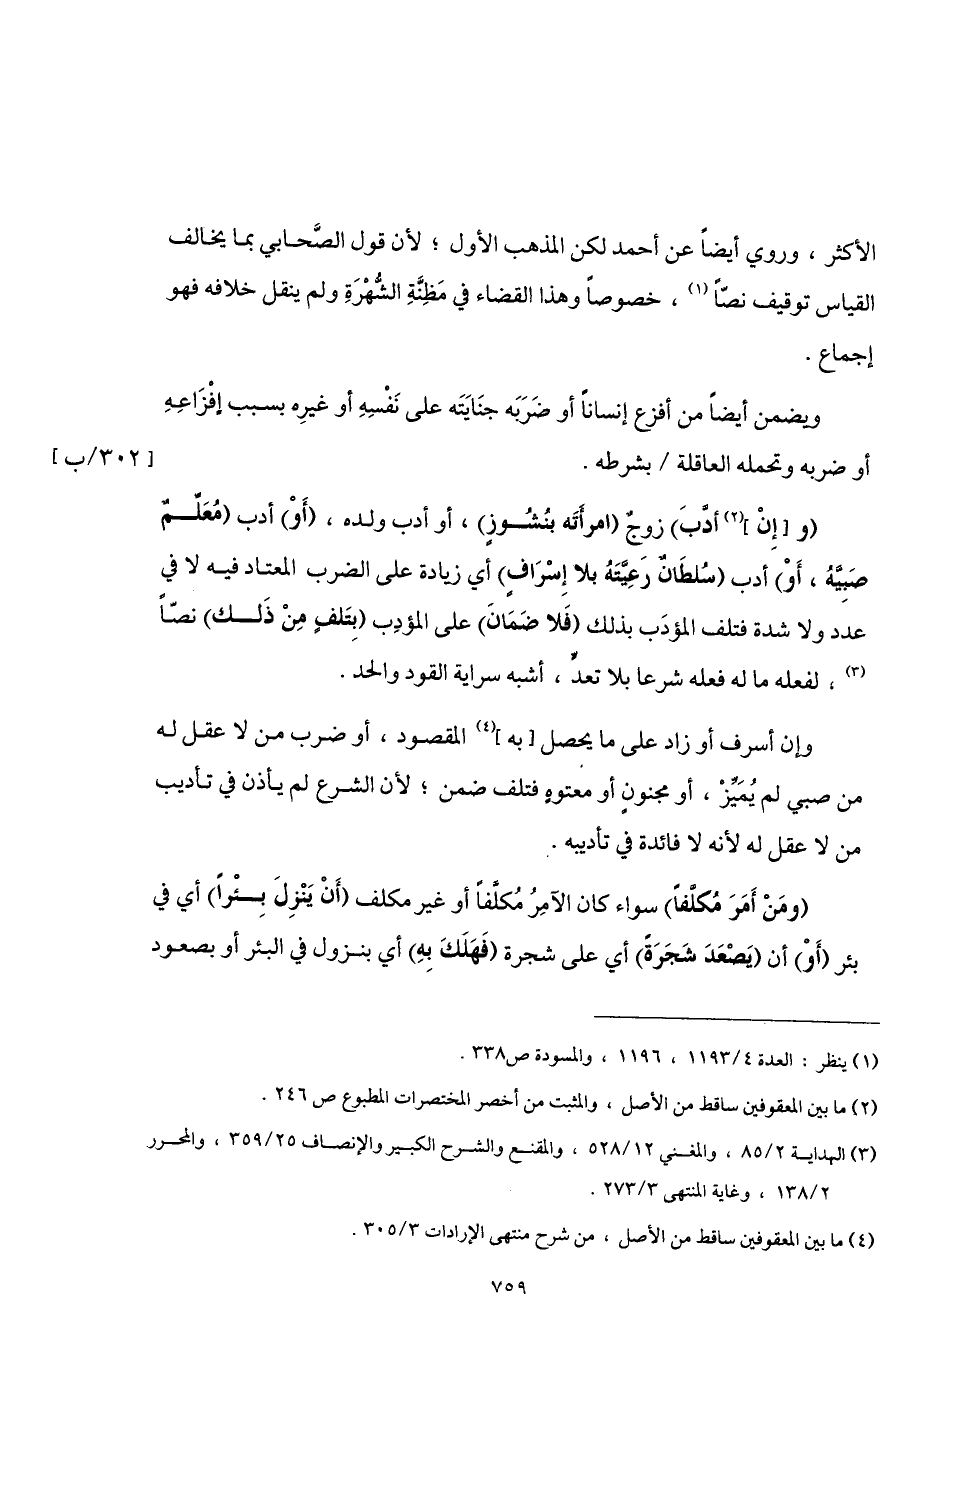 الأكثر ، وروي أيضاً عن أحمد لكن المذهب الأول ؛ لأن قول الصَّحابي بما يخالف
القياس توقيف نصّاً (١) ، خصوصاً وهذا القضاء في مَظِنَّةِ الشُّهْرَةِ ولم ينقل خلافه فهو
إجماع .
ويضمن أيضاً من أفزع إنساناً أو ضَرَبَه جنَايَتَه على نَفْسِهِ أو غيرِه بسبب إفْزَاعِهِ
أو ضربه وتحمله العاقلة / بشرطه . [ ٣٠٢/ب ]
(و [ إنْ ](٢) أدَّبَ) زوجٌ (امرأَتَه بنُشُوزٍ) ، أو أدب ولده ، (أَوْ) أدب (مُعَلِّمٌ
صَبِيَّهُ ، أَوْ) أدب (سُلطَانٌ رَعِيَّتَهُ بلا إسْرَافٍ) أي زيادة على الضرب المعتاد فيه لا في
عدد ولا شدة فتلف المؤدَب بذلك (فَلا ضَمَانَ) على المؤدِب (بتَلفٍ مِنْ ذَلك) نصّاً
(٣) ، لفعله ما له فعله شرعا بلا تعدٍّ ، أشبه سراية القود والحد .
وإن أسرف أو زاد على ما يحصل [ به ](٤) المقصود ، أو ضرب من لا عقل له
من صبي لم يُمَيِّزْ ، أو مجنونٍ أو معتوهٍ فتلف ضمن ؛ لأن الشرع لم يأذن في تأديب
من لا عقل له لأنه لا فائدة في تأديبه .
(ومَنْ أمَرَ مُكلَّفاً) سواء كان الآمِرُ مُكلَّفاً أو غير مكلف (أنْ يَنْزِلَ بِئْراً) أي في
بئر (أَوْ) أن (يَصْعَدَ شَجَرَةً) أي على شجرة (فَهَلَكَ بِهِ) أي بنزول في البئر أو بصعود
(١) ينظر : العدة ١١٩٣/٤ ، ١١٩٦ ، والمسودة ص٣٣٨ .
(٢) ما بين المعقوفين ساقط من الأصل ، والمثبت من أخصر المختصرات المطبوع ص ٢٤٦ .
(٣) الهداية ٨٥/٢ ، والمغني ٥٢٨/١٢ ، والمقنع والشرح الكبير والإنصاف ٣٥٩/٢٥ ، والمحرر
١٣٨/٢ ، وغاية المنتهى ٢٧٣/٣ .
(٤) ما بين المعقوفين ساقط من الأصل ، من شرح منتهى الإرادات ٣٠٥/٣ .
٧٥٩